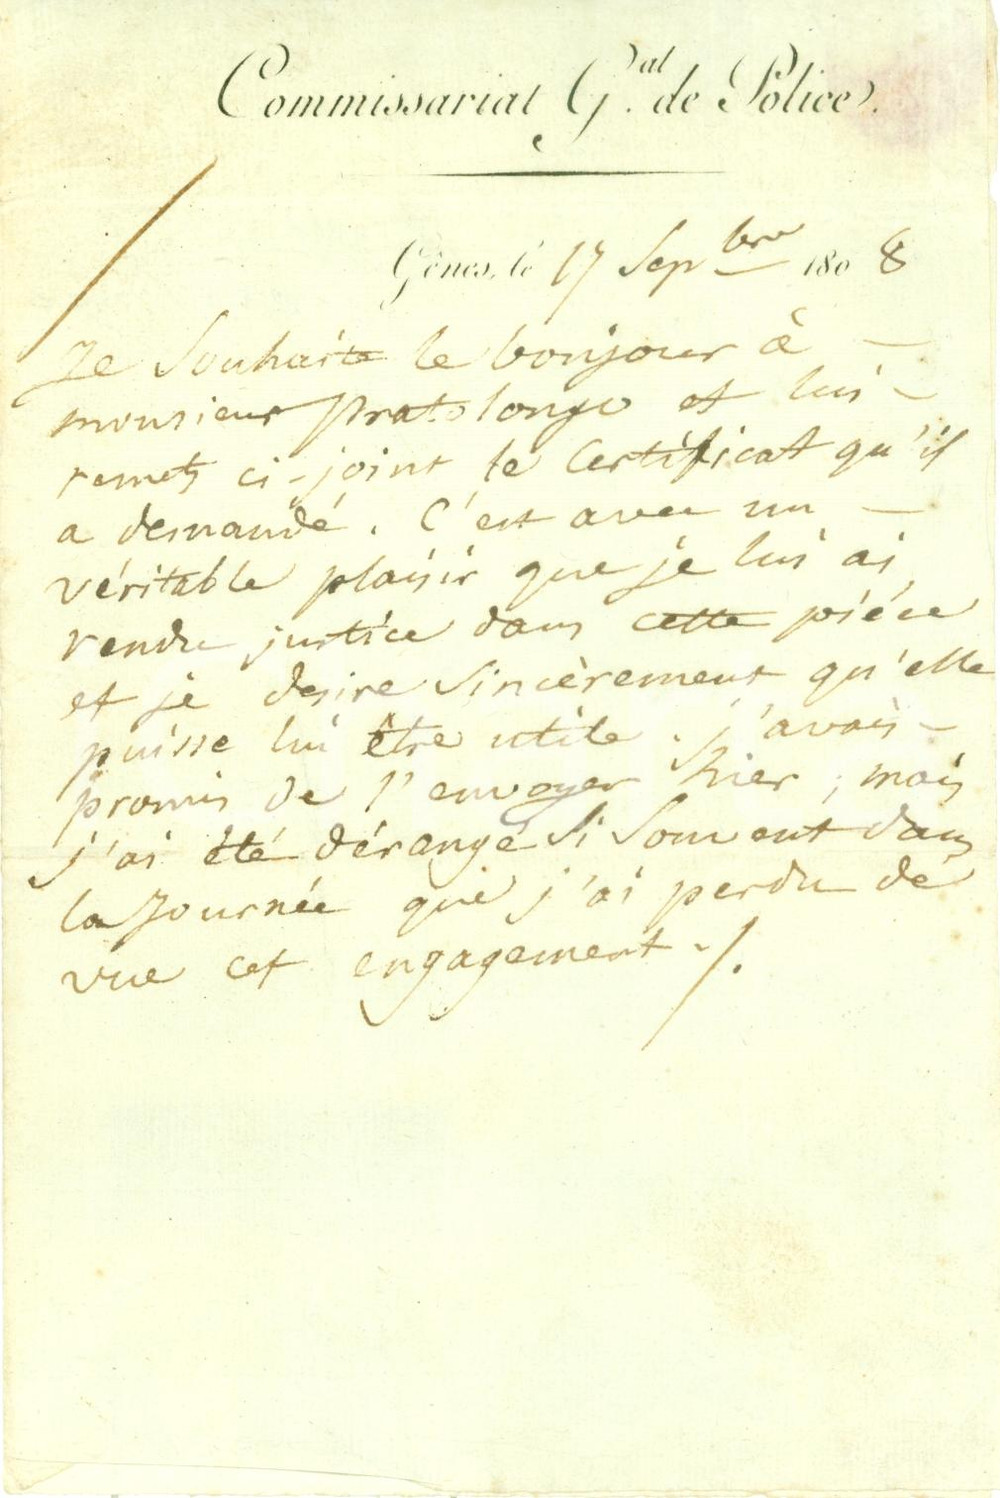 Commissariat G.al de Police.
Gênes, le 17 Sepbre 1808
Je Souhaite le bonjour à
monsieur pratolongo et lui
remets ci-joint le Certificat qu'il
a demandé. C'est avec un
véritable plaisir que je lui ai
rendu justice dans cette piéce
et je desire Sincèrement qu'elle
puisse lui être utile. j'avais
promis de l'envoyer hier, mais
j'ai été dérangé Si Souvent dans
la Journée que j'ai perdu de
vue cet engagement ./.